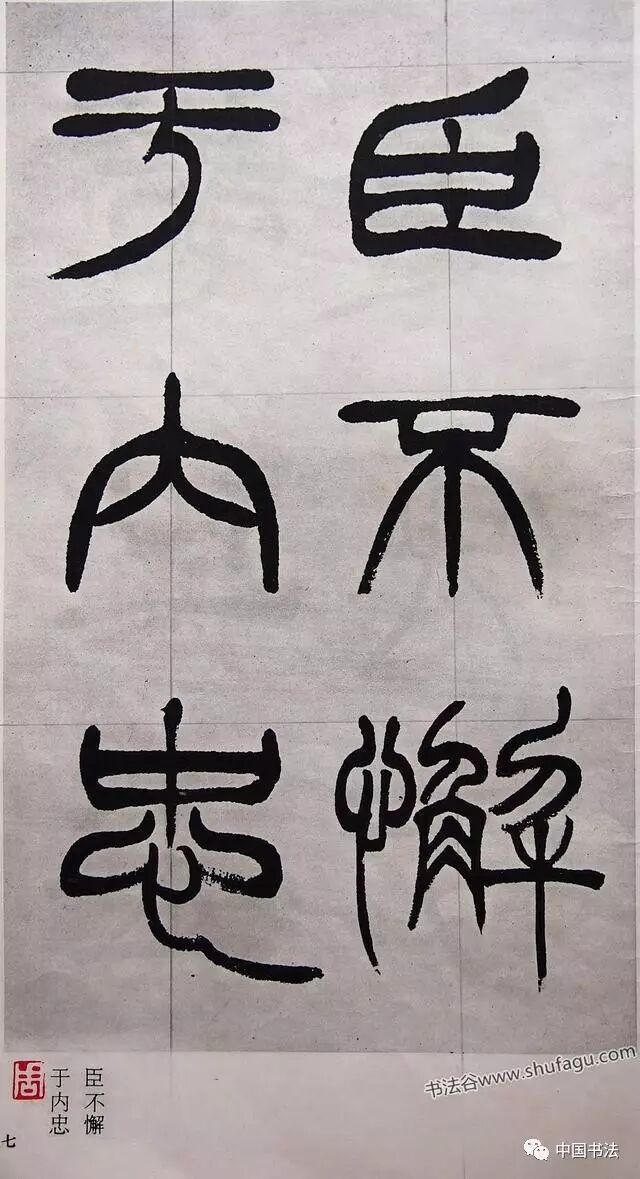 臣不懈
于内忠
书法谷www.shufagu.com
臣不懈
于内忠
周
七
中国书法